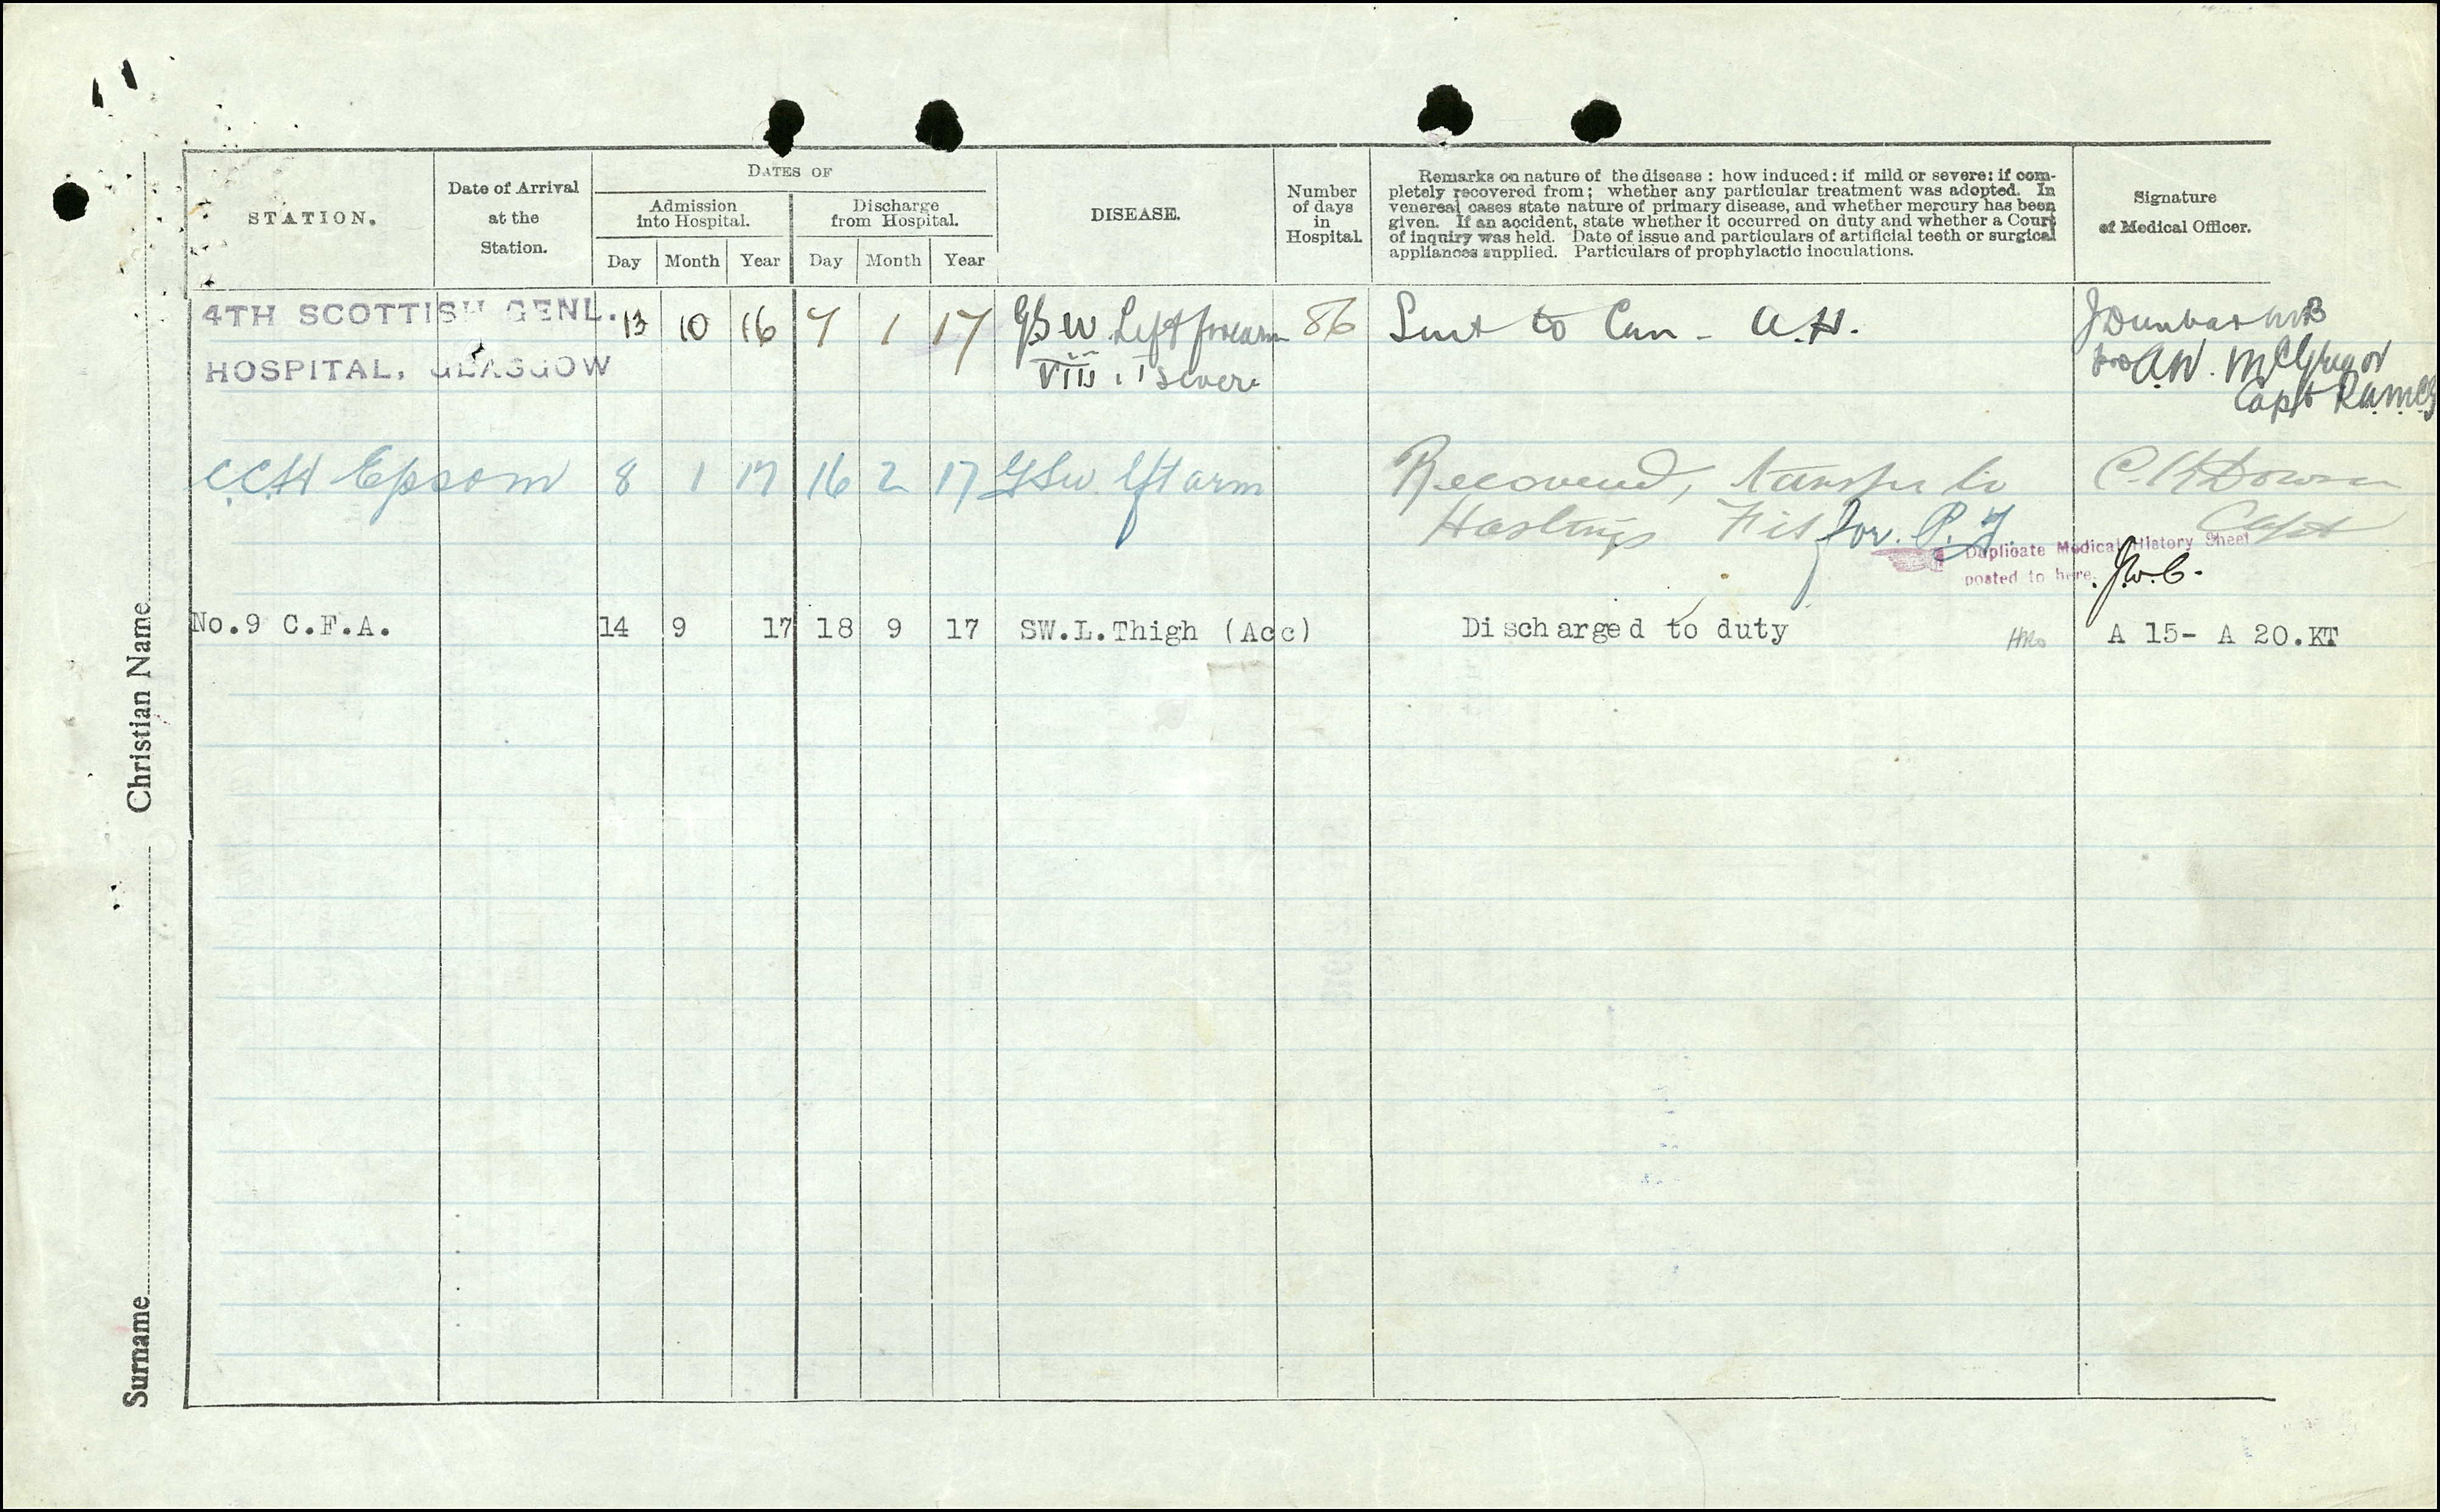 DATES OF
STATION.
Date of Arrival
at the
Station.
Admission
into Hospital.
Discharge
from Hospital.
Day Month Year Day Month Year
DISEASE.
Number
of days
in
Hospital.
Remarks on nature of the disease : how induced: if mild or severe: if com-
pletely recovered from; whether any particular treatment was adopted. In
venereal cases state nature of primary disease, and whether mercury has been
given. If an accident, state whether it occurred on duty and whether a Court
of inquiry was held. Date of issue and particulars of artificial teeth or surgical
appliances supplied. Particulars of prophylactic inoculations.
Signature
of Medical Officer.
4TH SCOTTISH GENL. 13 10 16 7 1 17 GSW Left forearm 86 Sent to Can - A.H. J Dunbar MB
HOSPITAL, GLASGOW VIII . I severe for A.W. McGregor
Capt R.A.M.C.
C.C.H Epsom 8 1 17 16 2 17 GSW lft arm Recovered, transfer to
Hastings Fit for P.T. Capt
Duplicate Medical History Sheet
posted to here. J.W.C.
No.9 C.F.A. 14 9 17 18 9 17 SW.L.Thigh (Acc) Discharged to duty A 15- A 20.KT
Christian Name
Surname